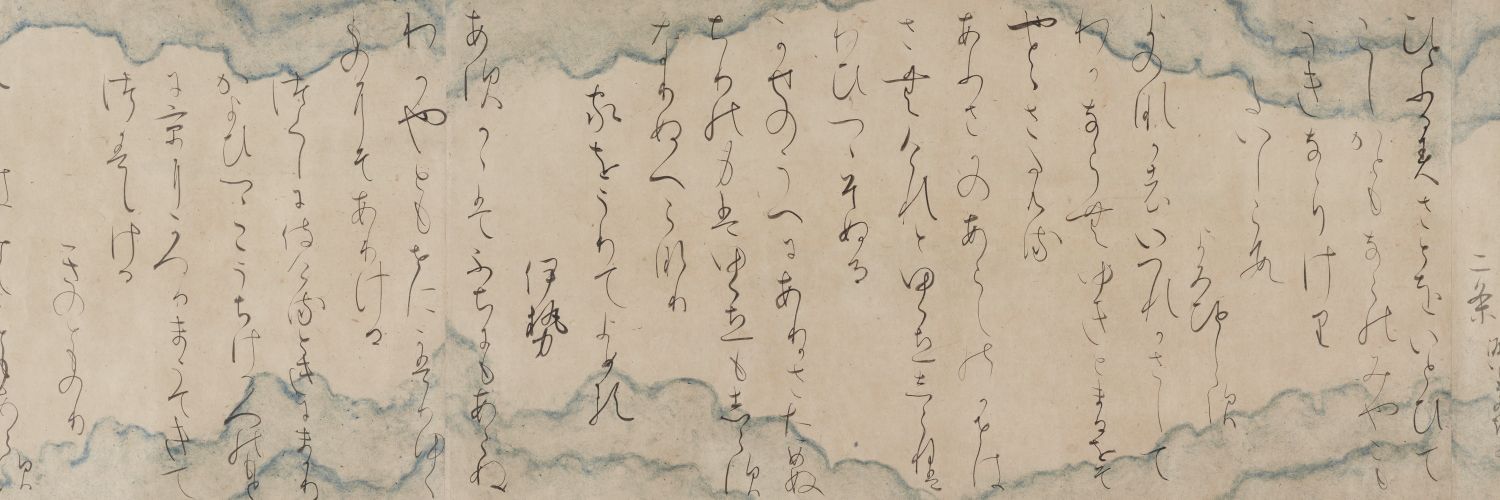 二条
ひとふるすさとをいとひて
こしかともならのみやこも
うきななりけり
たいしらす
よみひとしらす
よの中はいつれかさして
わかならむゆきとまるをそ
やとゝさたむる
あふさかのあらしのかせは
さむけれとゆくゑしらねは
わひつゝそぬる
かせのうへにありかさためぬ
ちりの身はゆくゑもしらす
なりぬへらなり
家をうりてよめる
伊勢
あすかゝはふちにもあらぬ
わかやともせにかはりゆく
ものにそありける
つくしに侍けるときにまかり
かよひつゝこうちけ人のもと
に京にかへりまうてきて
つかはしける
きのとものり